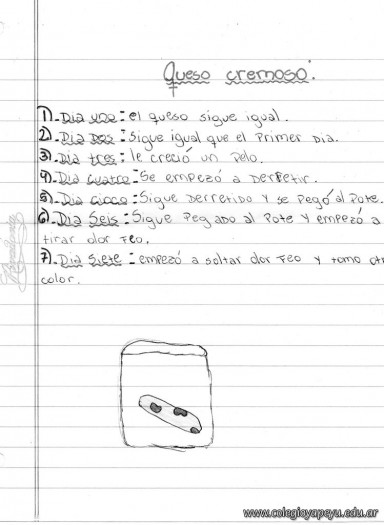 Queso cremoso:
1)-Dia uno: el queso sigue igual.
2)-Dia Dos: Sigue igual que el Primer Dia.
3)-Dia tres: le creció un Pelo.
4)-Dia cuatro: Se empezó a Derretir.
5)-Dia cinco: Sigue Derretido y se Pegó al Pote.
6)-Dia Seis: Sigue Pegado al Pote y empezó a
tirar olor Feo.
7)-Dia Siete: empezó a soltar olor Feo y tomo otr
color.
www.colegioyapeyu.edu.ar